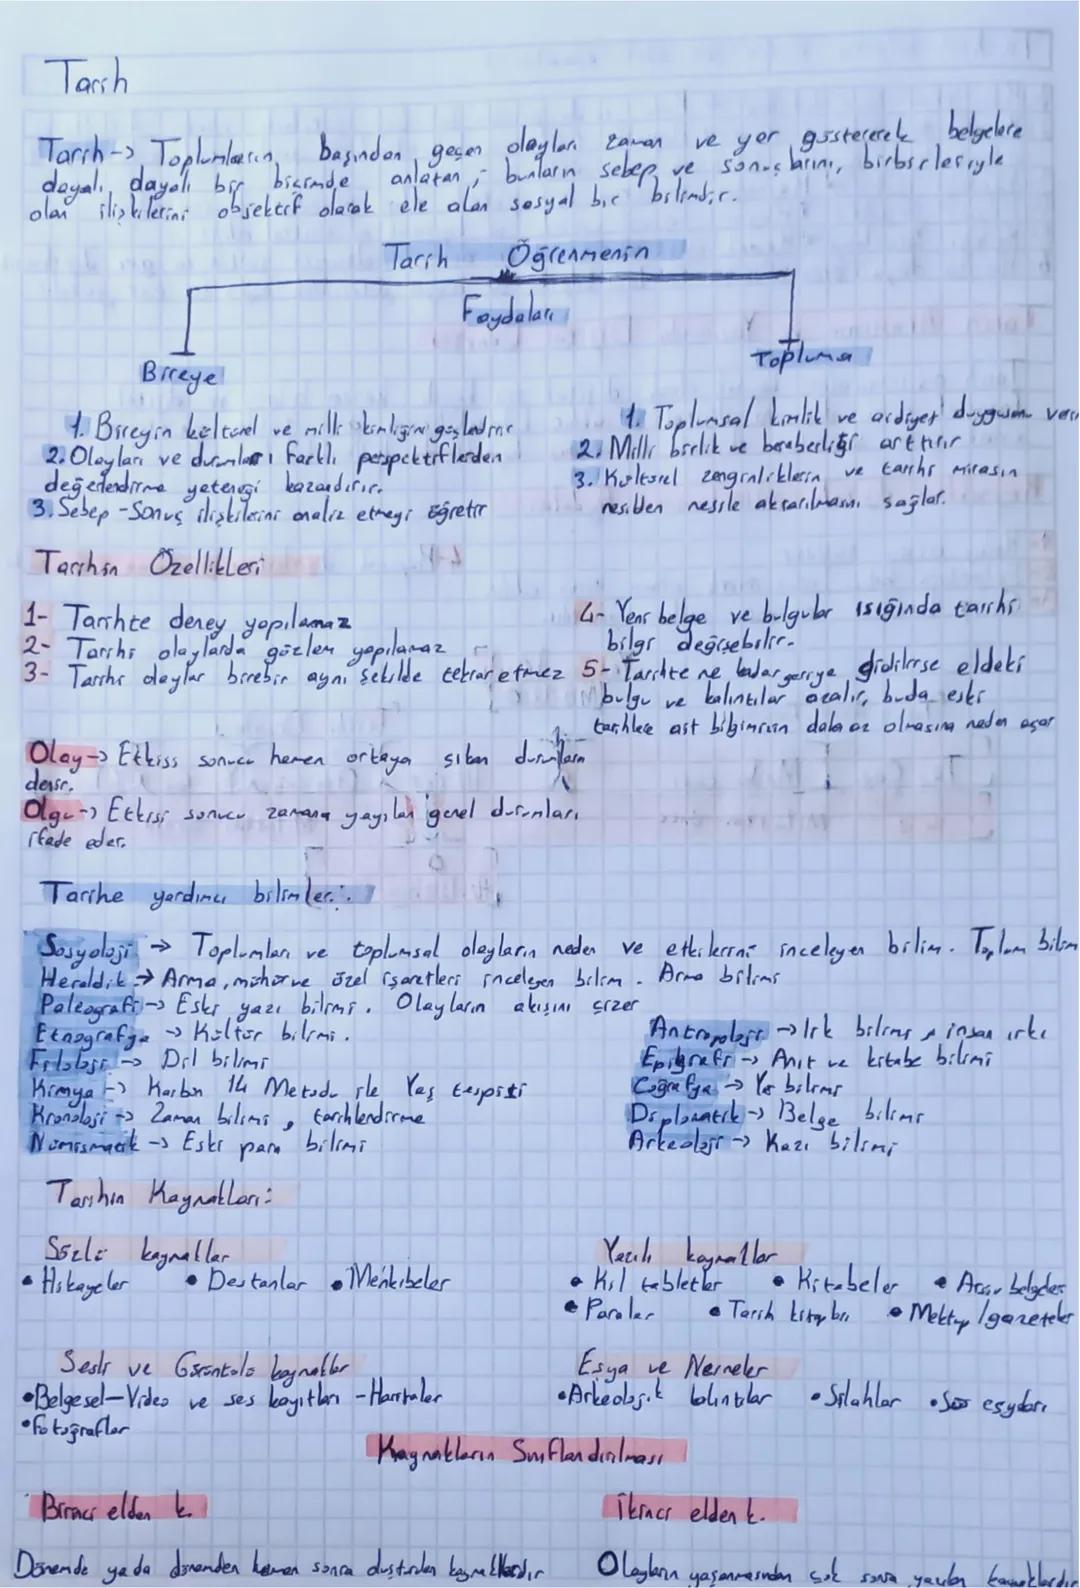 Tarih
Tarih-> Toplumların başından geçen olayları zaman ve yer göstererek belgelere
dayalı, dayalı bir biçimde anlatan, bunların sebep ve sonuçlarını, birbirleriyle
olan ilişkilerini objektif olarak ele alan sosyal bir bilimdir.
Tarih Öğrenmenin
Faydaları
Bireye
Topluma
1. Bireyin kültürel ve milli kimliğini güçlendirir
2. Olayları ve durumları farklı perspektiflerden
değerlendirme yeteneği kazandırır.
3. Sebep-Sonuç ilişkilerini analiz etmeyi öğretir
1. Toplumsal kimlik ve aidiyet duygusunu verir
2. Milli birlik ve beraberliği arttırır
3. Kültürel zenginliklerin ve tarihi mirasın
nesilden nesile aktarılmasını sağlar.
Tarihin Özellikleri
1- Tarihte deney yapılamaz
2- Tarihi olaylarda gözlem yapılamaz
3- Tarihi olaylar birebir aynı şekilde tekrar etmez
4- Yeni belge ve bulgular ışığında tarihi
bilgi değişebilir.
5- Tarihte ne kadar geriye gidilirse eldeki
bulgu ve kalıntılar azalır, buda eski
tarihlere ait daha az olmasına neden açar
Olay-> Etkisi sonucu hemen ortaya çıkan durumlara
denir.
Olgu-> Etkisi sonucu zamana yayılan genel durumları
ifade eder.
Tarihe yardımcı bilimler:
Sosyoloji -> Toplumları ve toplumsal olayların neden ve etkilerini inceleyen bilim. Toplum bilim
Heraldik -> Arma, mühür ve özel işaretleri inceleyen bilim. Arma bilimi
Paleografi -> Eski yazı bilimi. Olayların akışını çizer
Etnografya -> Kültür bilimi.
Filoloji -> Dil bilimi
Kimya -> Karbon 14 Metodu ile Yaş tespiti
Kronoloji -> Zaman bilimi, tarihlendirme
Nümismatik -> Eski para bilimi
Antropoloji -> Irk bilimi, insan ırkı
Epigrafi -> Anıt ve kitabe bilimi
Coğrafya -> Yer bilimi
Diplomatik -> Belge bilimi
Arkeoloji -> Kazı bilimi
Tarihin Kaynakları:
Sözlü kaynaklar
• Hikayeler • Destanlar • Menkıbeler
Yazılı kaynaklar
• Kil tabletler • Kitabeler • Arşiv belgeler
• Paralar • Tarih kitapları • Mektup/gazeteler
Sesli ve Görüntülü kaynaklar
• Belgesel-Video ve ses kayıtları - Haritalar
• Fotoğraflar
Eşya ve Nesneler
• Arkeolojik kalıntılar • Silahlar • Süs eşyaları
Kaynakların Sınıflandırılması
Birinci elden k.
İkinci elden k.
Dönemde ya da dönemden hemen sonra oluşturulan kaynaklardır
Olayların yaşanmasından çok sonra yazılan kaynaklardır